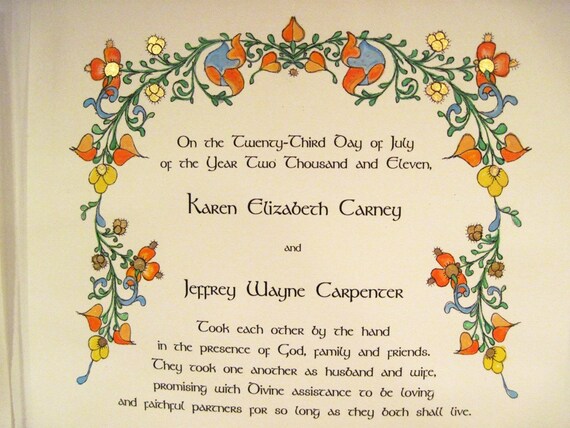 On the Twenty-Third Day of July
of the Year Two Thousand and Eleven,
Karen Elizabeth Carney
and
Jeffrey Wayne Carpenter
Took each other by the hand
in the presence of God, family and friends.
They took one another as husband and wife,
promising with Divine assistance to be loving
and faithful partners for so long as they both shall live.